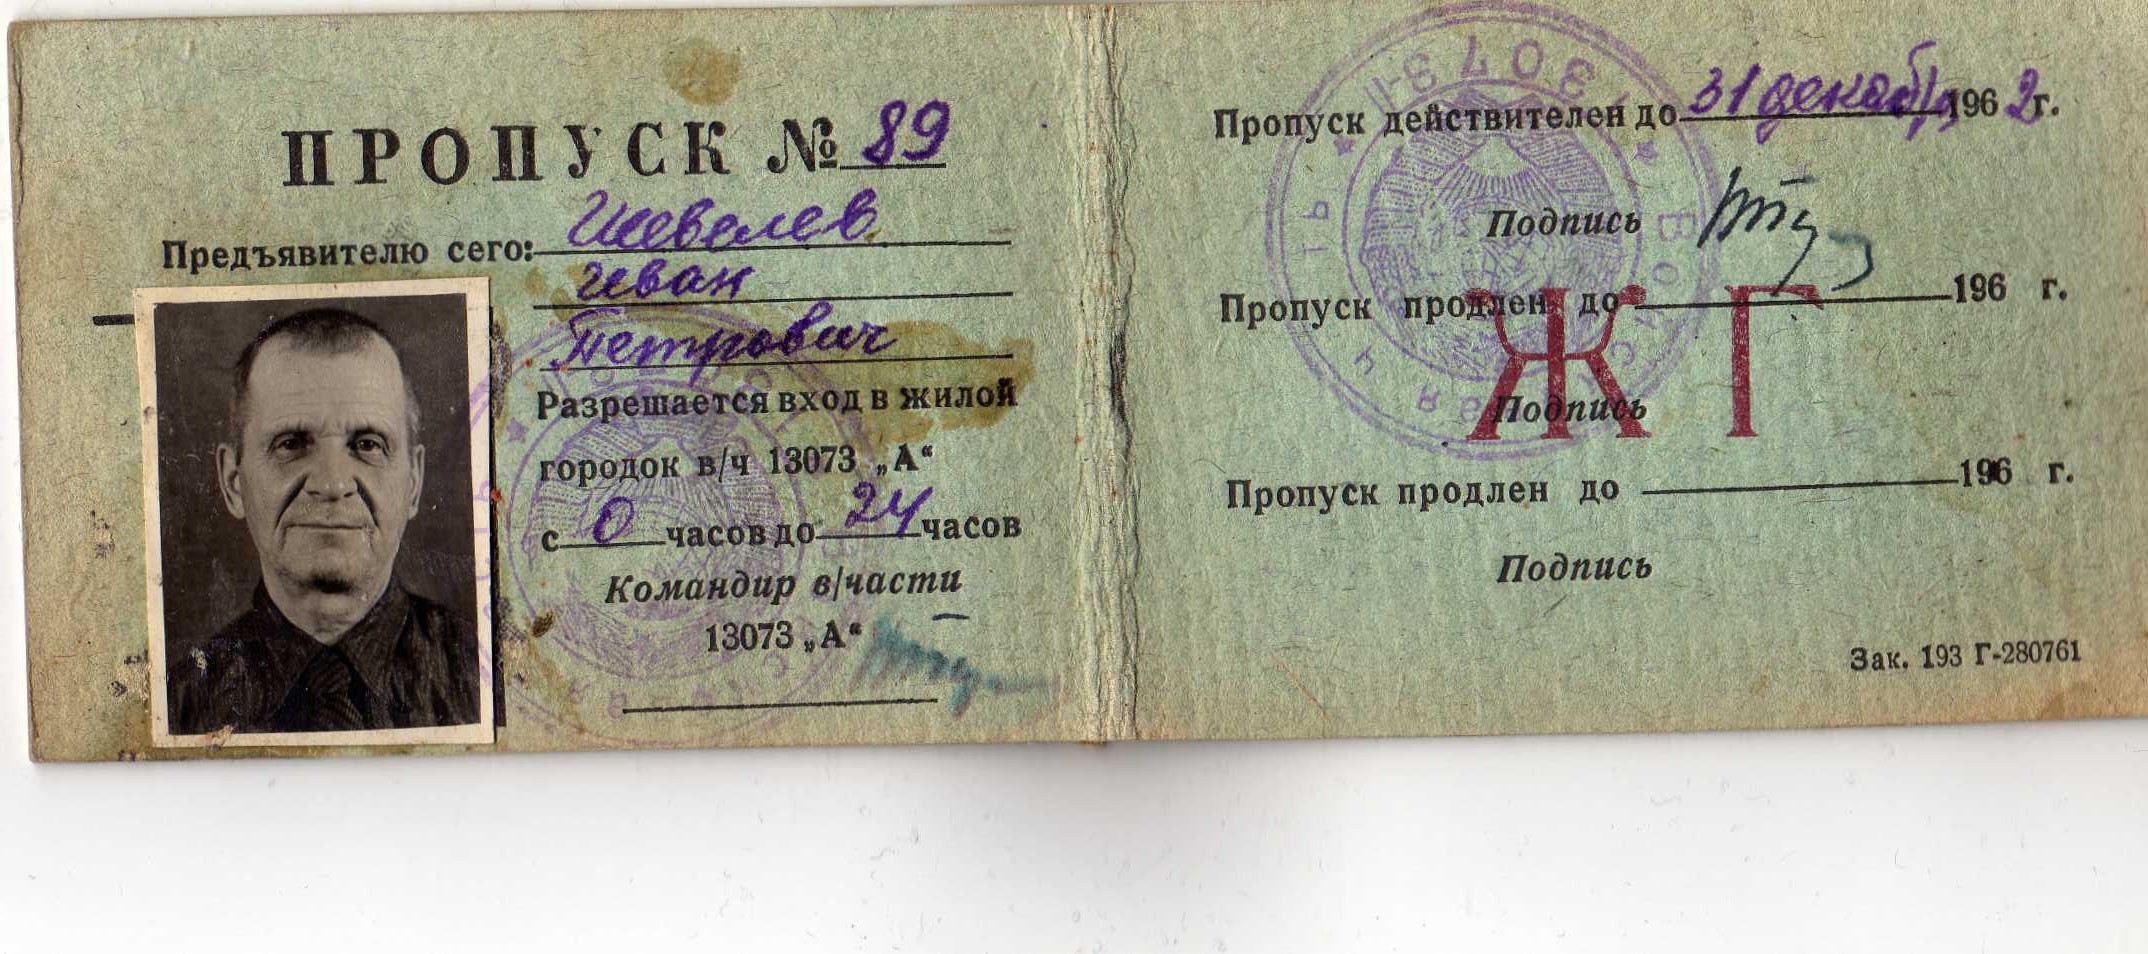 ПРОПУСК № 89
Предъявителю сего: Шевелев
Иван
Петрович
Разрешается вход в жилой
городок в/ч 13073 „А“
с 0 часов до 24 часов
Командир в/части
13073 „А“
Пропуск действителен до 31 декабря 1962 г.
Подпись
Пропуск продлен до 196 г.
ЖГ
Подпись
Пропуск продлен до 196 г.
Подпись
Зак. 193 Г-280761